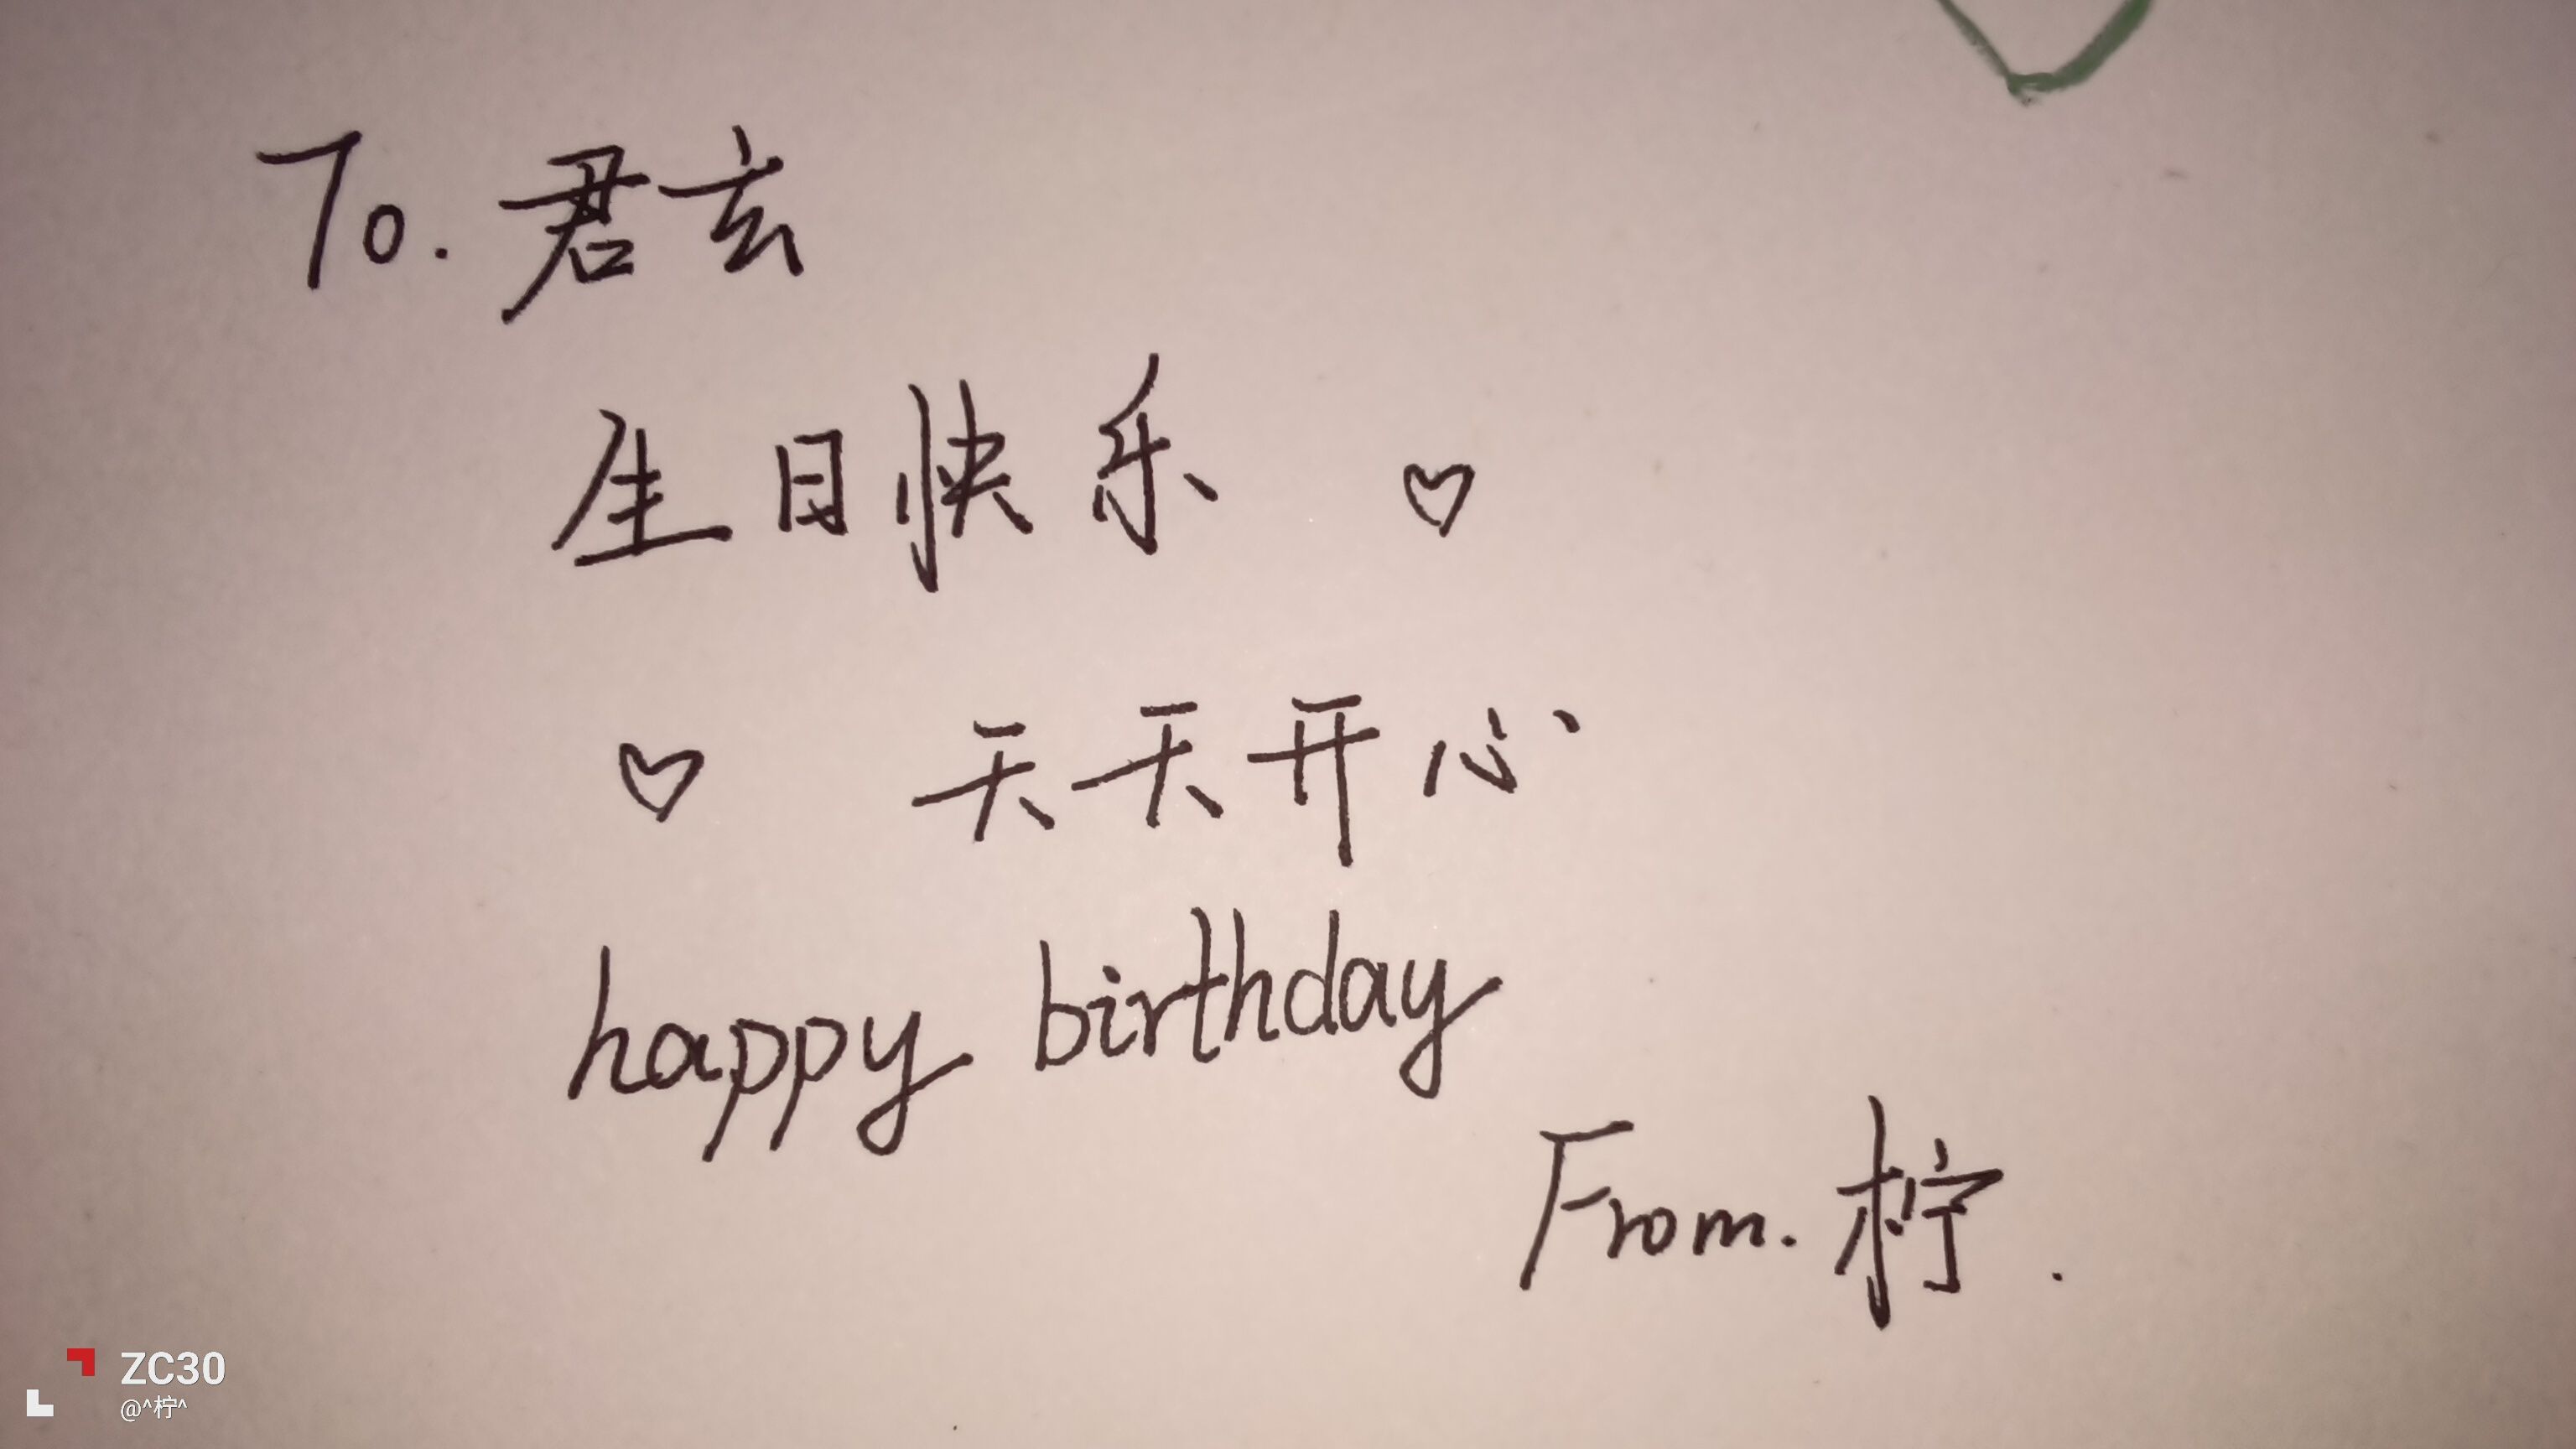 To. 君玄
生日快乐 ♡
♡ 天天开心
happy birthday
From. 柠.
ZC30
@^柠^